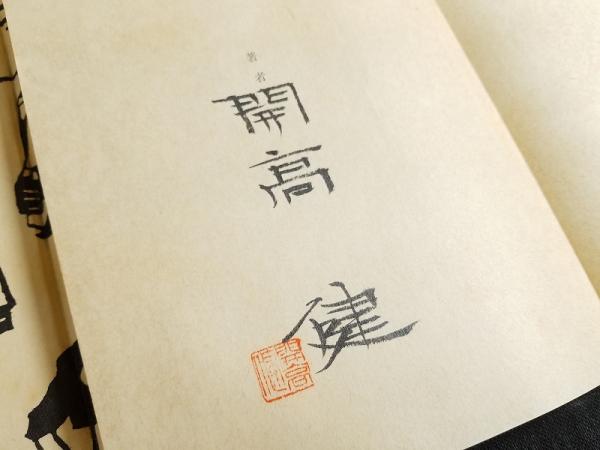 著者
開高 健
開高